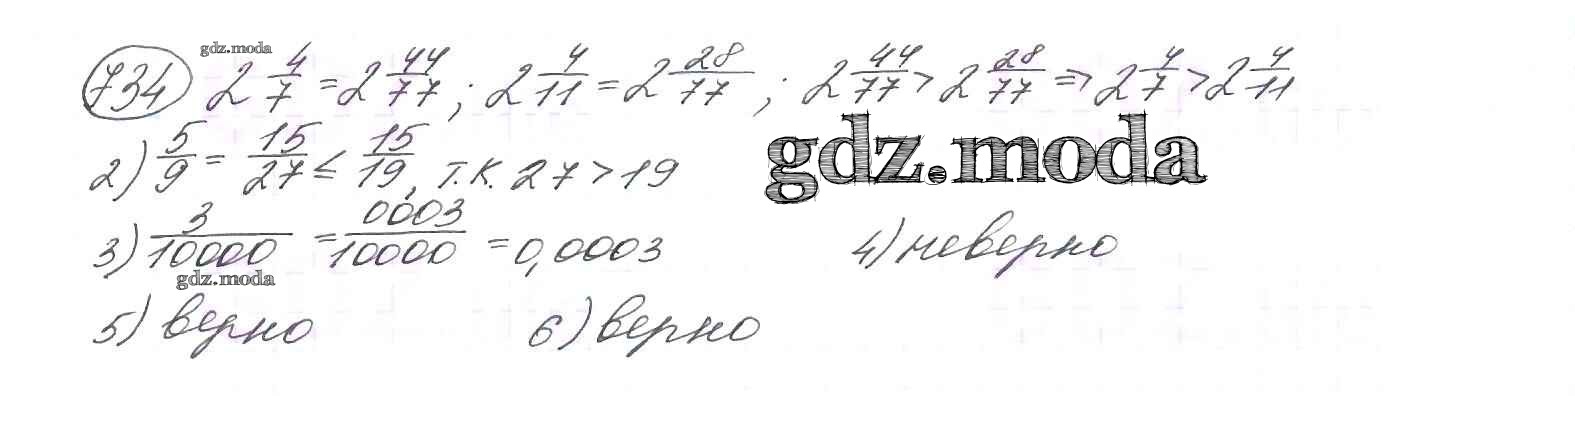 gdz.moda
734 2 4/7 = 2 44/77 ; 2 4/11 = 2 28/77 ; 2 44/77 > 2 28/77 => 2 4/7 > 2 4/11
2) 5/9 = 15/27 ≤ 15/19, т.к. 27 > 19
gdz.moda
3) 3/10000 = 0003/10000 = 0,0003 4) неверно
gdz.moda
5) верно 6) верно